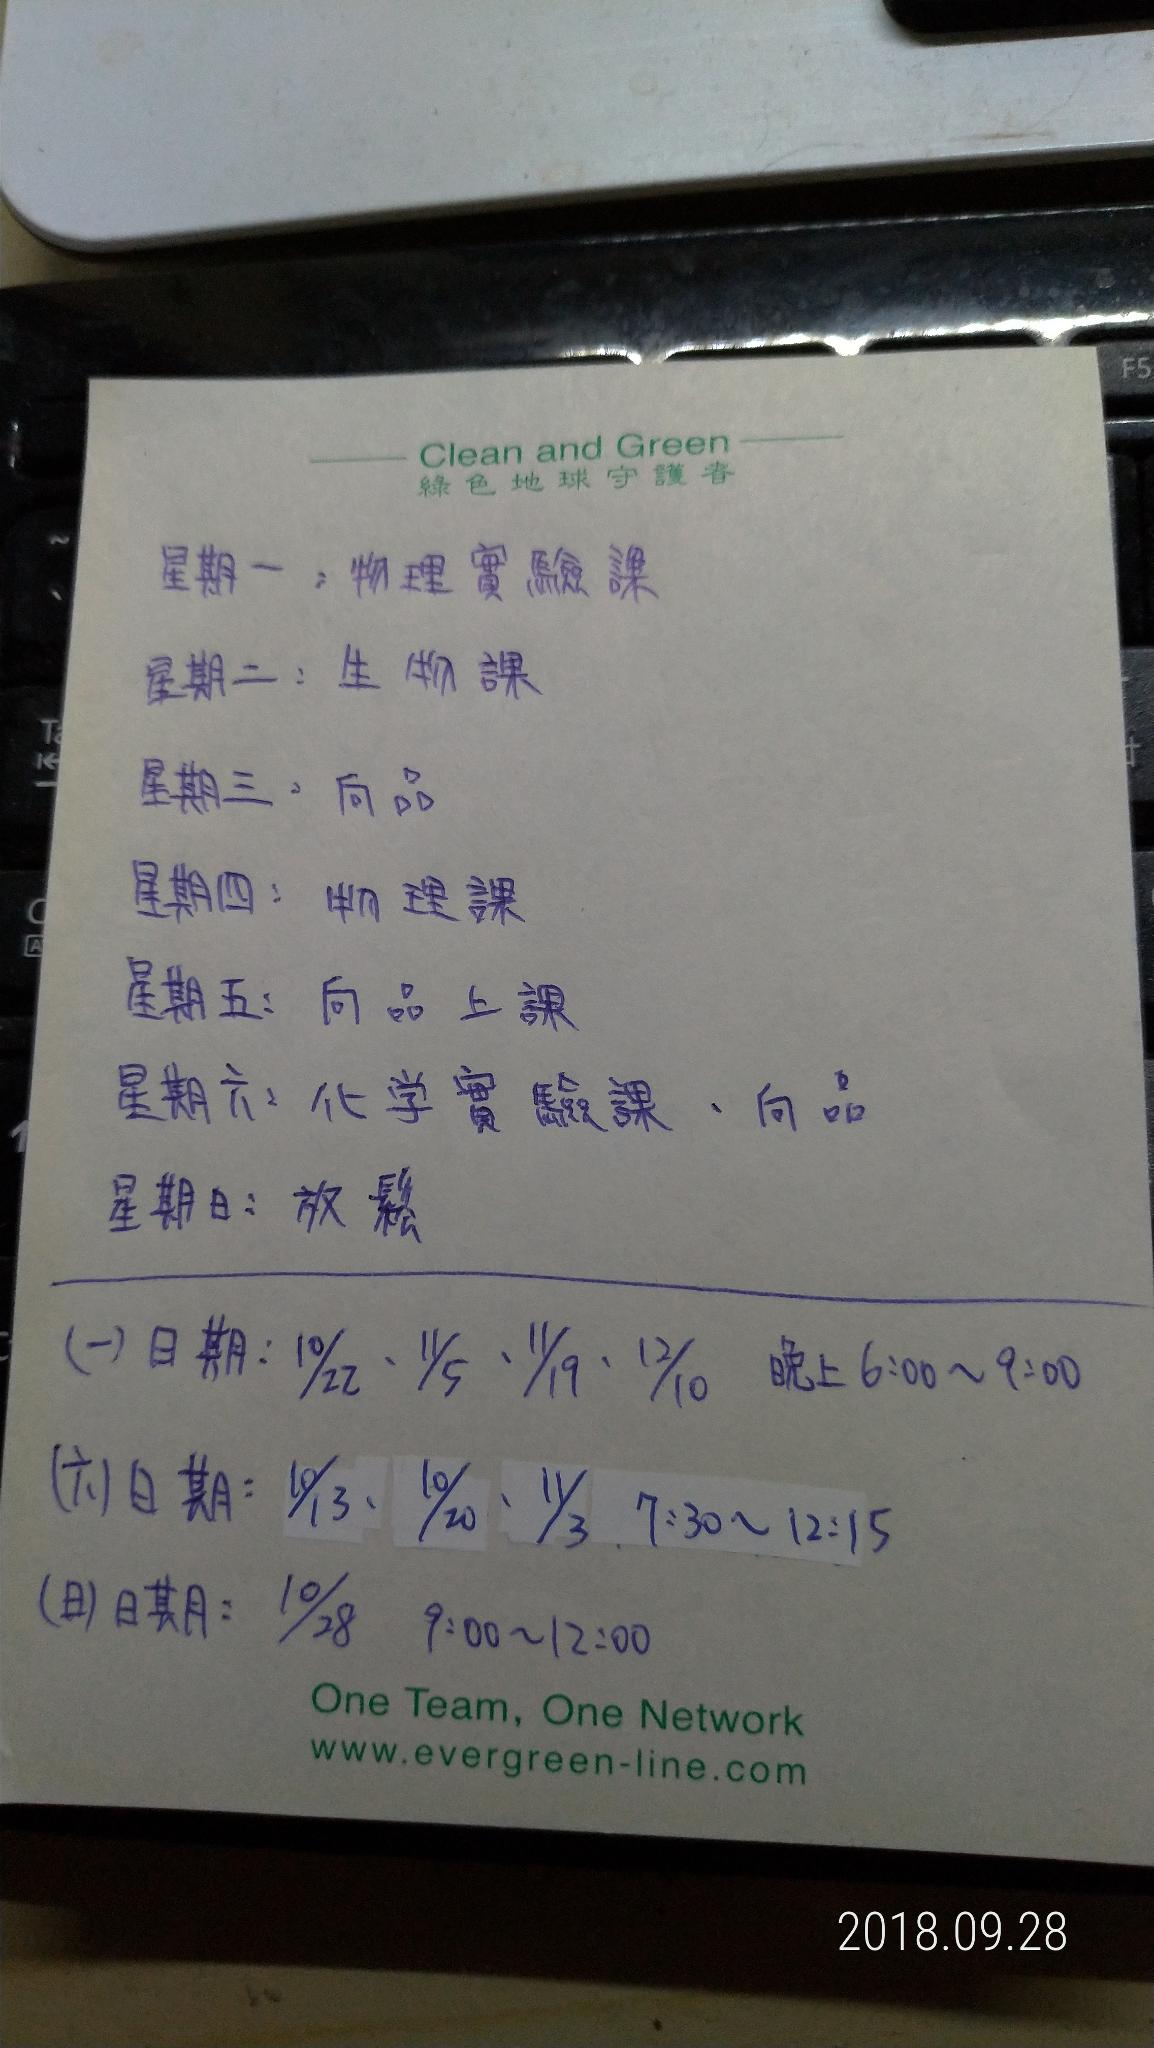 F5
Clean and Green
綠色地球守護者
星期一：物理實驗課
星期二：生物課
星期三：向品
星期四：物理課
星期五：向品上課
星期六：化学實驗課、向品
星期日：放鬆
(一)日期：10/22、11/5、11/19、12/10 晚上6:00~9:00
(六)日期：10/13、10/20、11/3 7:30~12:15
(日)日期：10/28 9:00~12:00
One Team, One Network
www.evergreen-line.com
2018.09.28